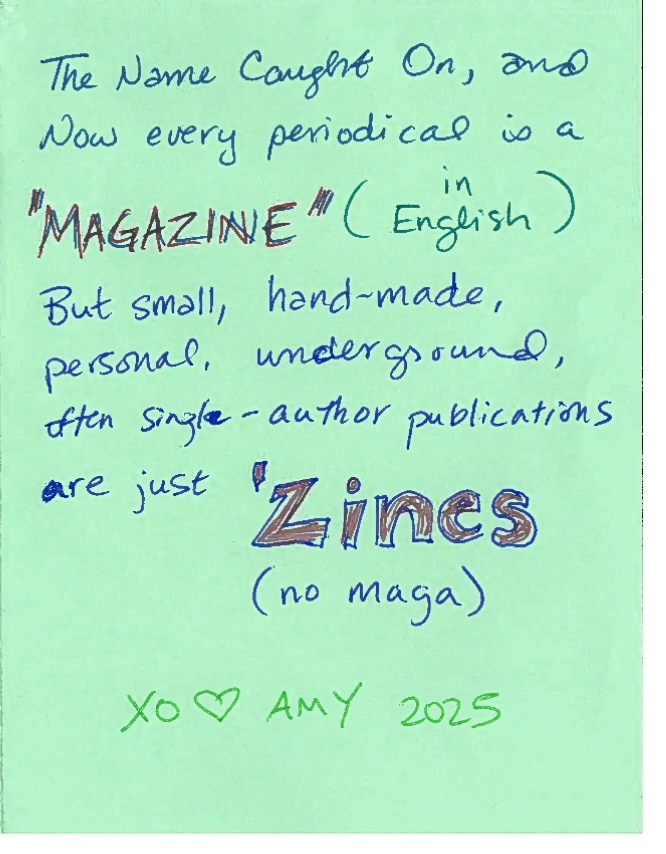 The Name Caught On, and
Now every periodical is a
"MAGAZINE" (in English)
But small, hand-made,
personal, underground,
often single-author publications
are just 'Zines
(no maga)
XO ♡ AMY 2025